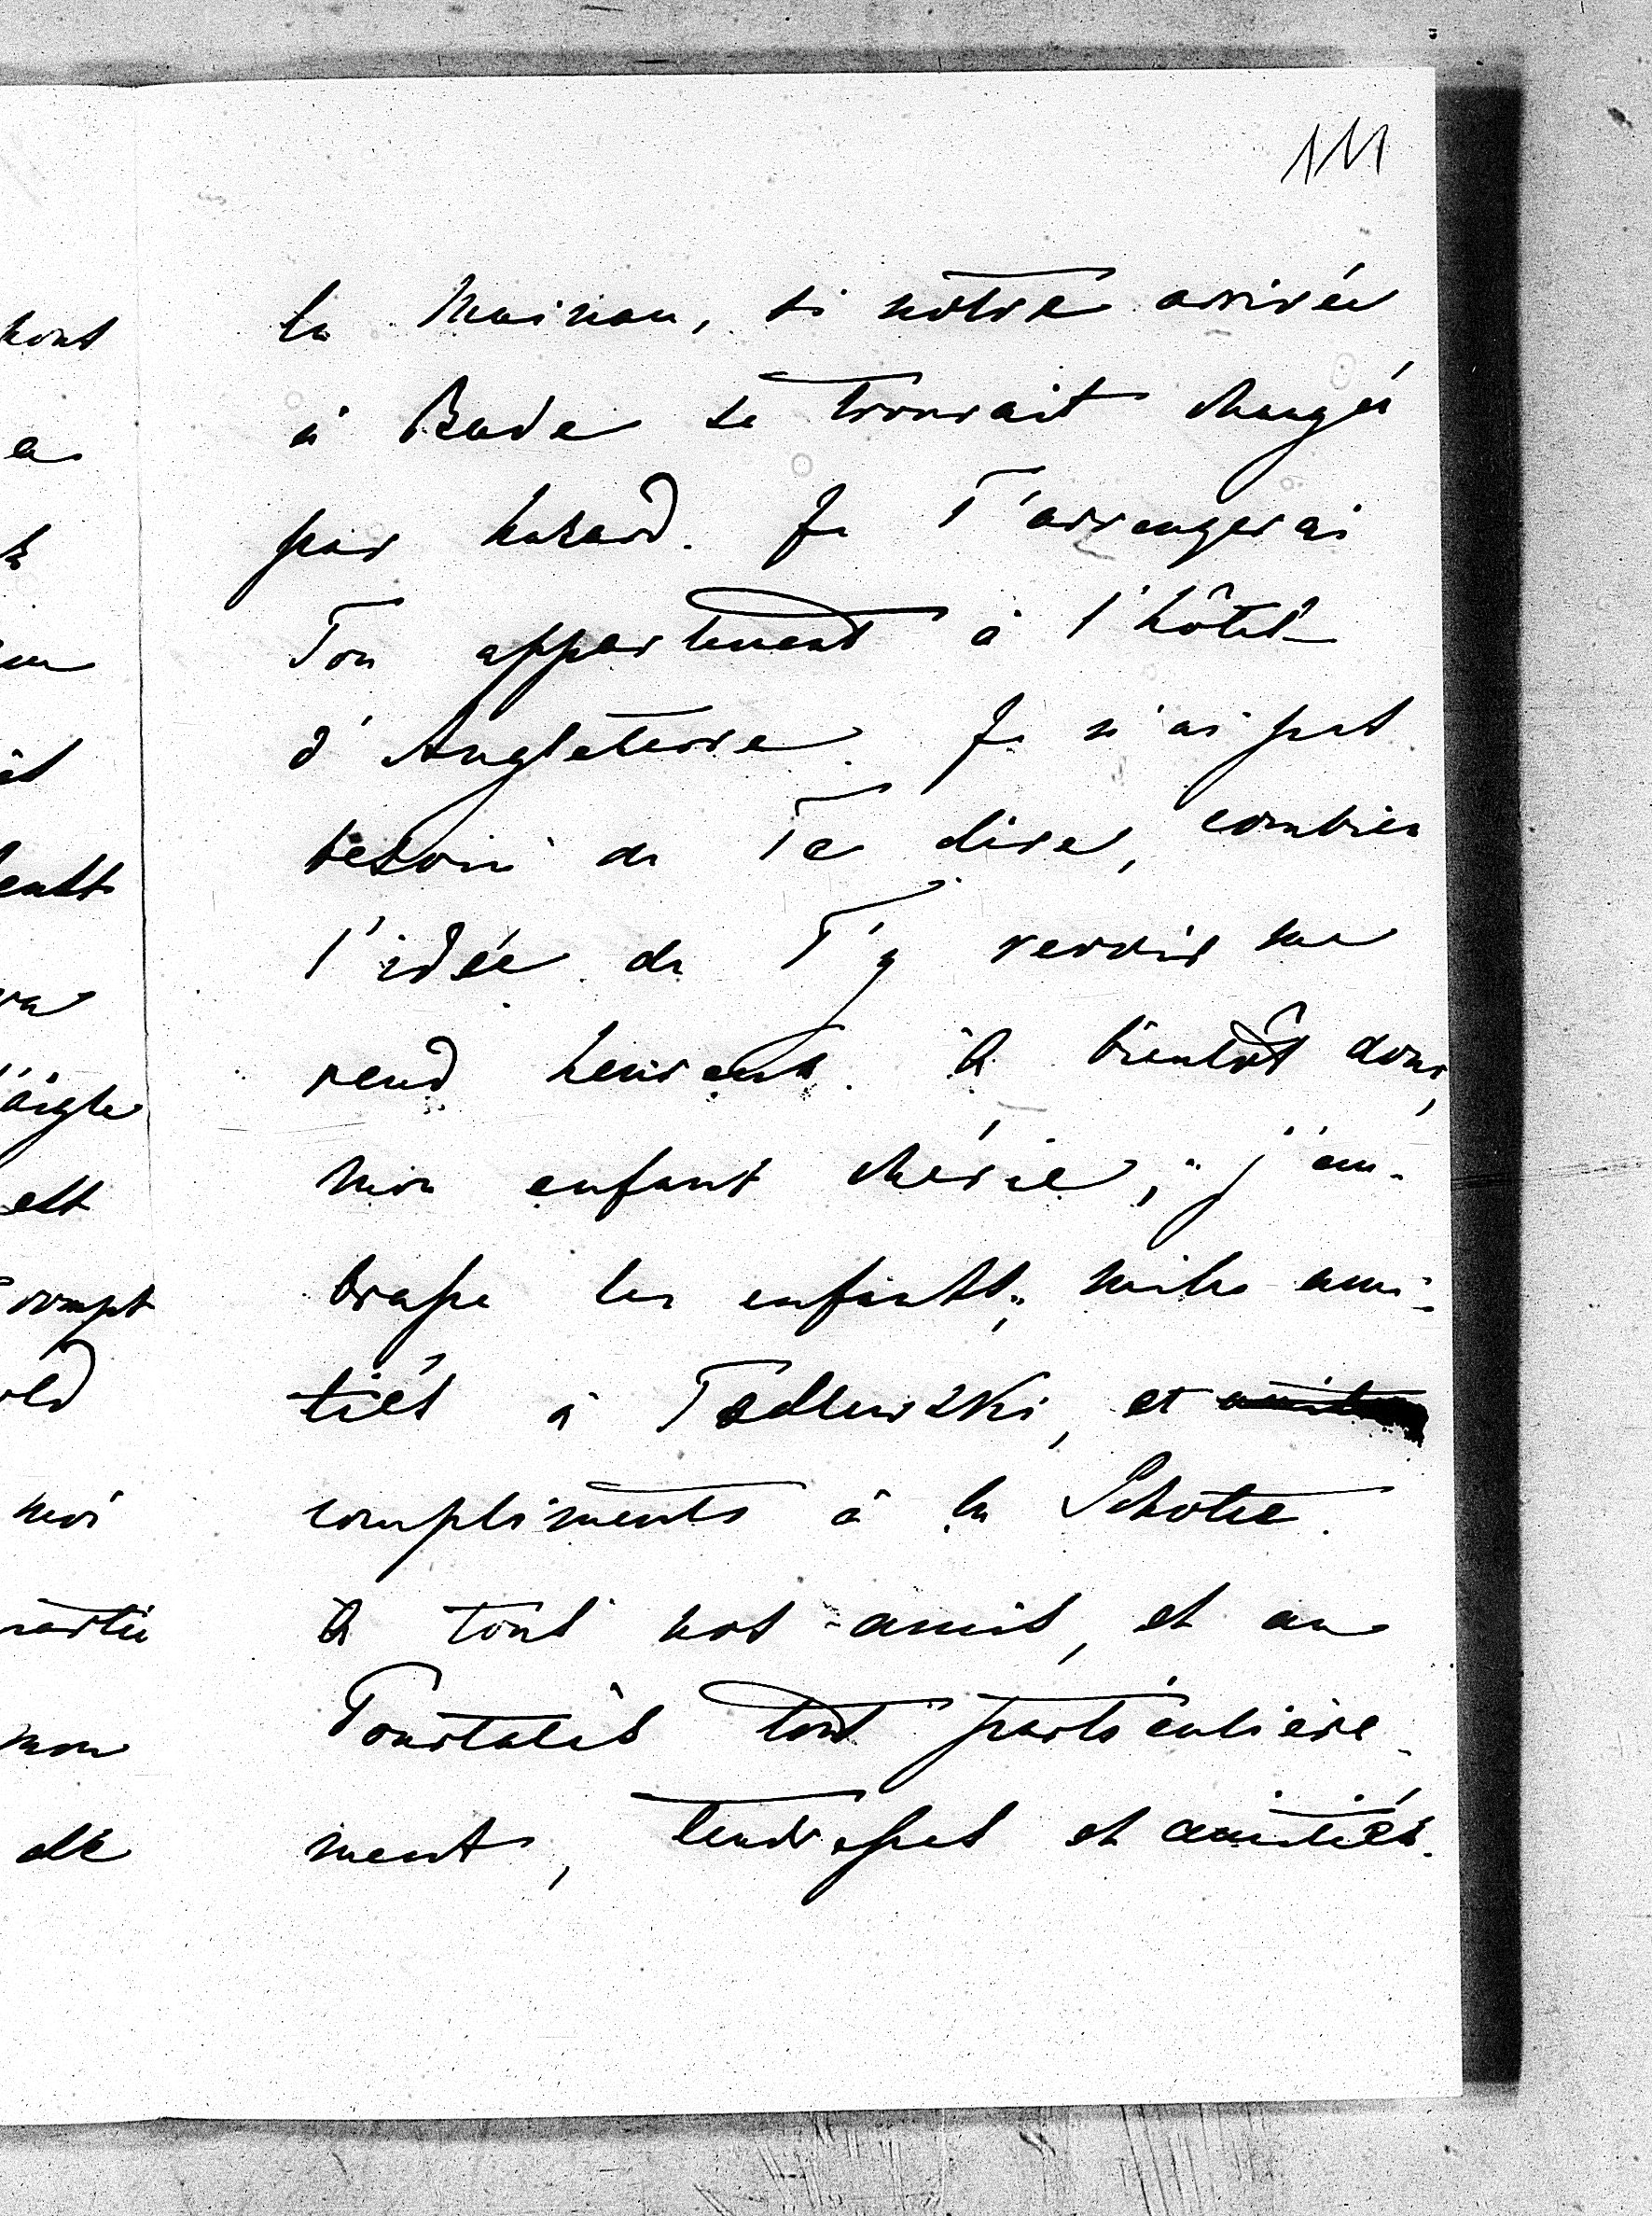 111
la Mainau, si nôtre arrivée
à Bade se trouvait changée
par hazard. Je T'arrangerai
Ton appartement à l'hôtel
d'Angleterre. Je n'ai pas
besoin de Te dire, combien
l'idée de T'y revoir me
rend heureux. A bientôt donc,
mon enfant chérie; j'em-
brasse les enfants; milles ami-
tiés à , et
compliments à la
A tous nos amis, et au
Pourtalès tout particulière-
ment, tendresses et amitiés.